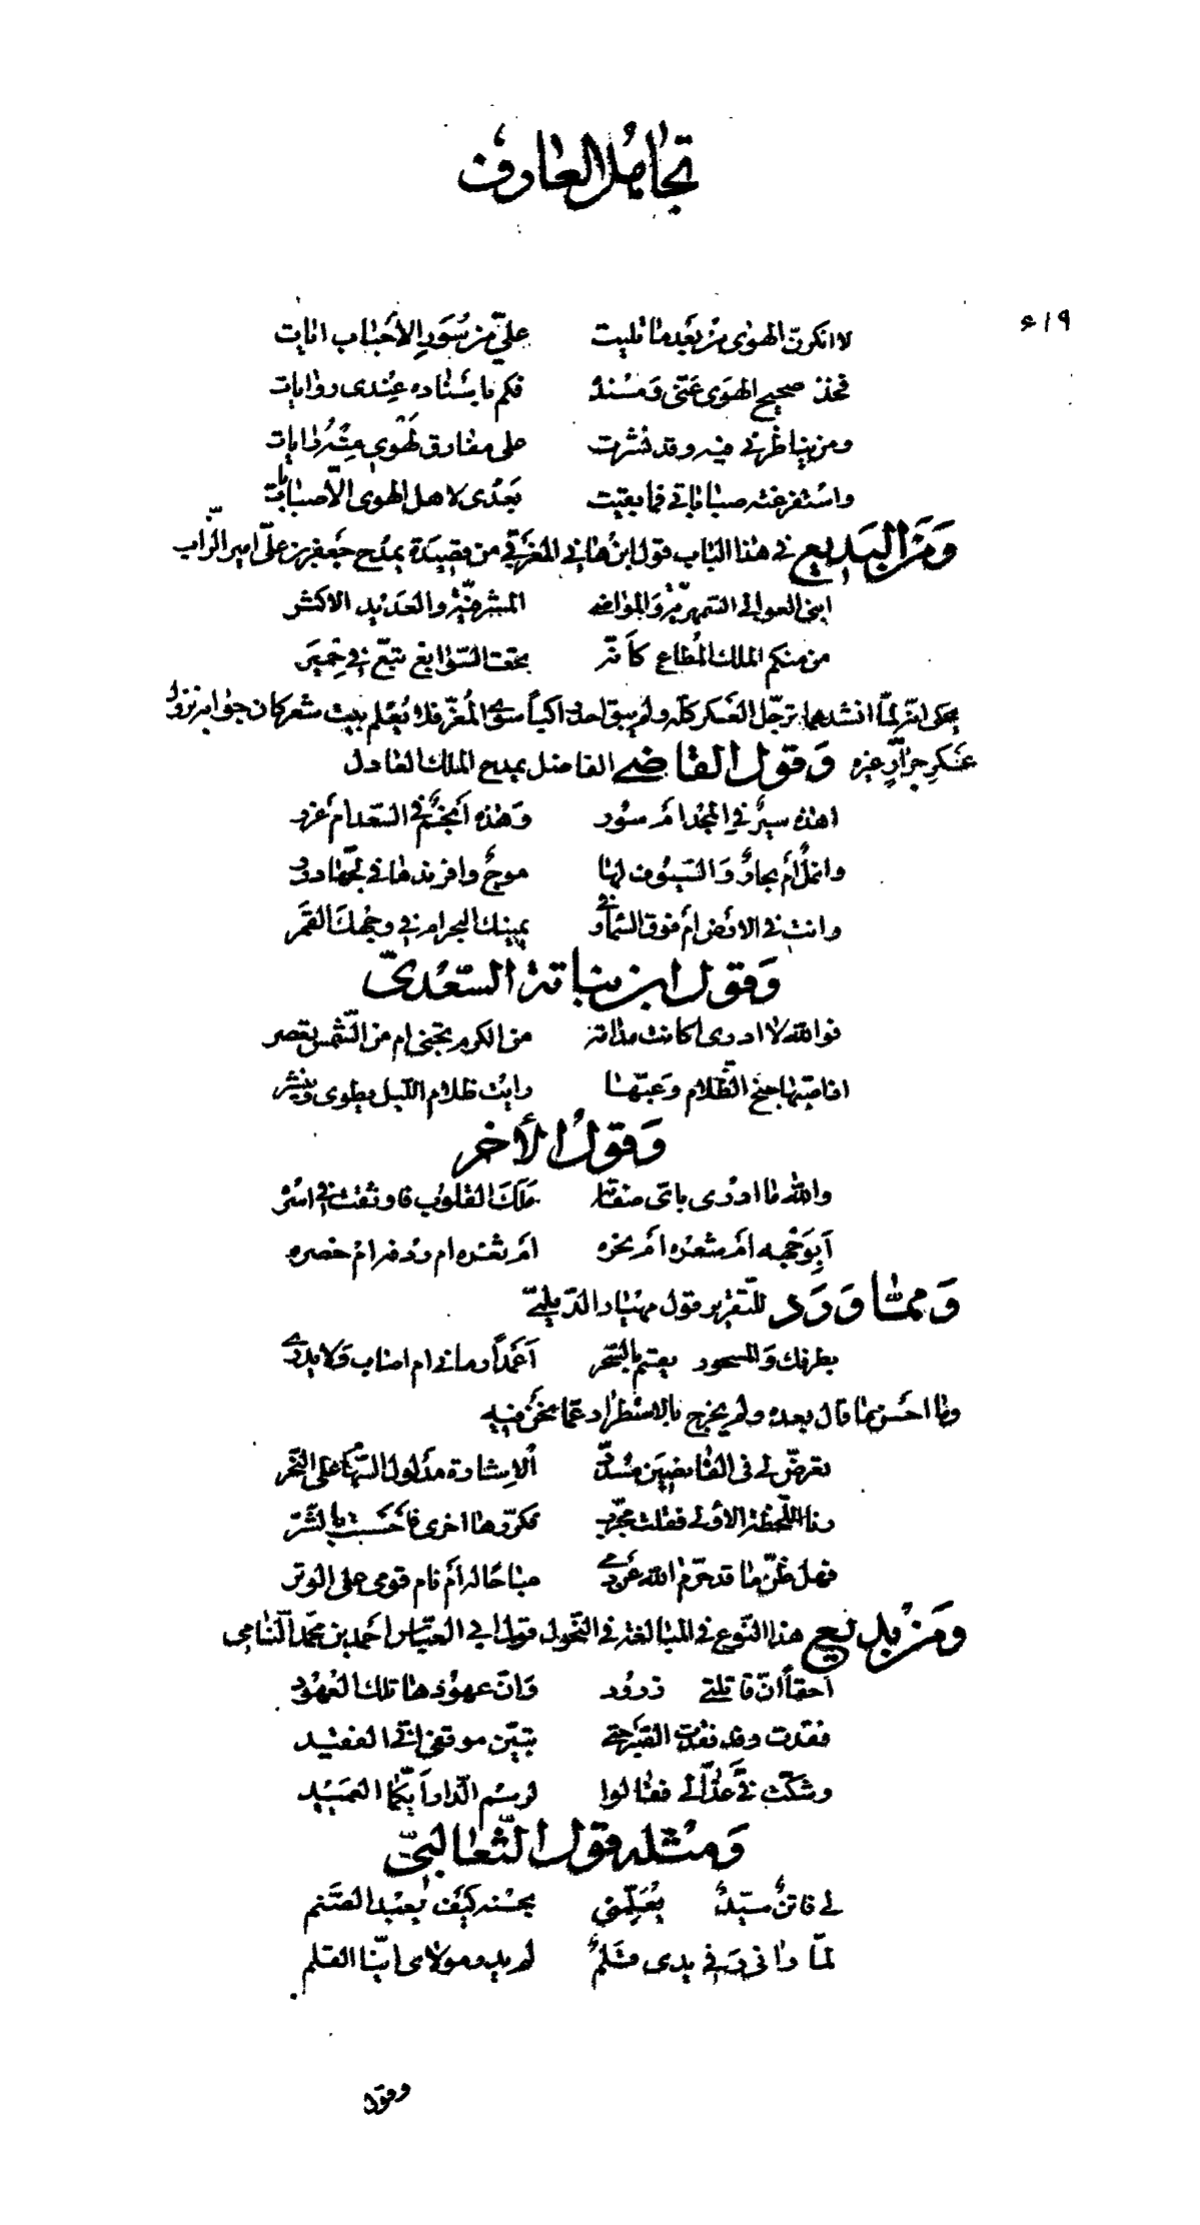 تجاهل العارف
٤١٩
لا انكرن الهوى من بعد ما تليت علي من سور الأحباب ايات
فخذ صحيح الهوى عني ومسنده فكم باسناده عندي روايات
ومن يناظرني فيه وقد نشرت على مفارق لهوى منه رايات
واستفرغته صباباتي فما بقيت بعدى لاهل الهوى الا صبابات
ومن البديع في هذا الباب قول ابن هاني المغربي من قصيدة يمدح جعفر بن علي امير الزاب
ابني العوالي السمهرية والمواضي المشرفية والعديد الاكثر
من منكم الملك المطاع كأنه تحت السوابغ تبع في حمير
يحكى انه لما انشدهما ترجل العسكر كله ولم يبق احد راكبا سوى المعز فلا يعلم بيت شعر كان جوابه نزول
عسكر جرار غيره وقول القاضي الفاضل يمدح الملك العادل
اهذه سير في المجد ام سور وهذه أنجم في السعد ام غرر
وانمل أم بحار والسيوف لها موج وافرندها في لجها درر
وانت في الارض أم فوق السماء وفي يمينك البحر ام في وجهك القمر
وقول ابن نباتة السعدي
فوالله لا ادرى اكانت مدامة من الكرم تجنى ام من الشمس تعصر
اذا صبها جنح الظلام وعبها رايت ظلام الليل يطوى وينشر
وقول الأخر
والله ما ادرى باى صفة ملك القلوب فاوثقت في اسره
أبوجهه ام شعره ام نحره ام ثغره ام ردفه ام خصره
ومما ورد للتقرير قول مهيار الديلمي
بطرفك والمسحور يقسم بالسحر أعمدا رماني ام اصاب ولا يدري
وما احسن ما قال بعده ولم يخرج بالاستطراد عما نحن فيه
تعرض لي في القانصين مسدد الاشارة مدلول السهام على النحر
رنا اللحظة الاولى فقلت مجرب فكررها اخرى فأحسست بالشر
فهل ظن ما قد حرم الله من دمي مباحا له أم نام قومي على الوتر
ومن بديع هذا النوع في المبالغة في التحول قول ابي العباس احمد بن محمد النامي
أحقا ان قاتلتي زرود وان عهودها تلك العهود
وقفت وقد فقدت الصبر حتى تبين موقفي اني الفقيد
وشكت في عذالي فقالوا لرسم الدار أيكما العميد
ومثله قول الثعالبي
لي فاتن سيد يعلمني بحسنه كيف يعبد الصنم
لما راني وفي يدى قلم لم يدر مولاي اينا القلم
وقول